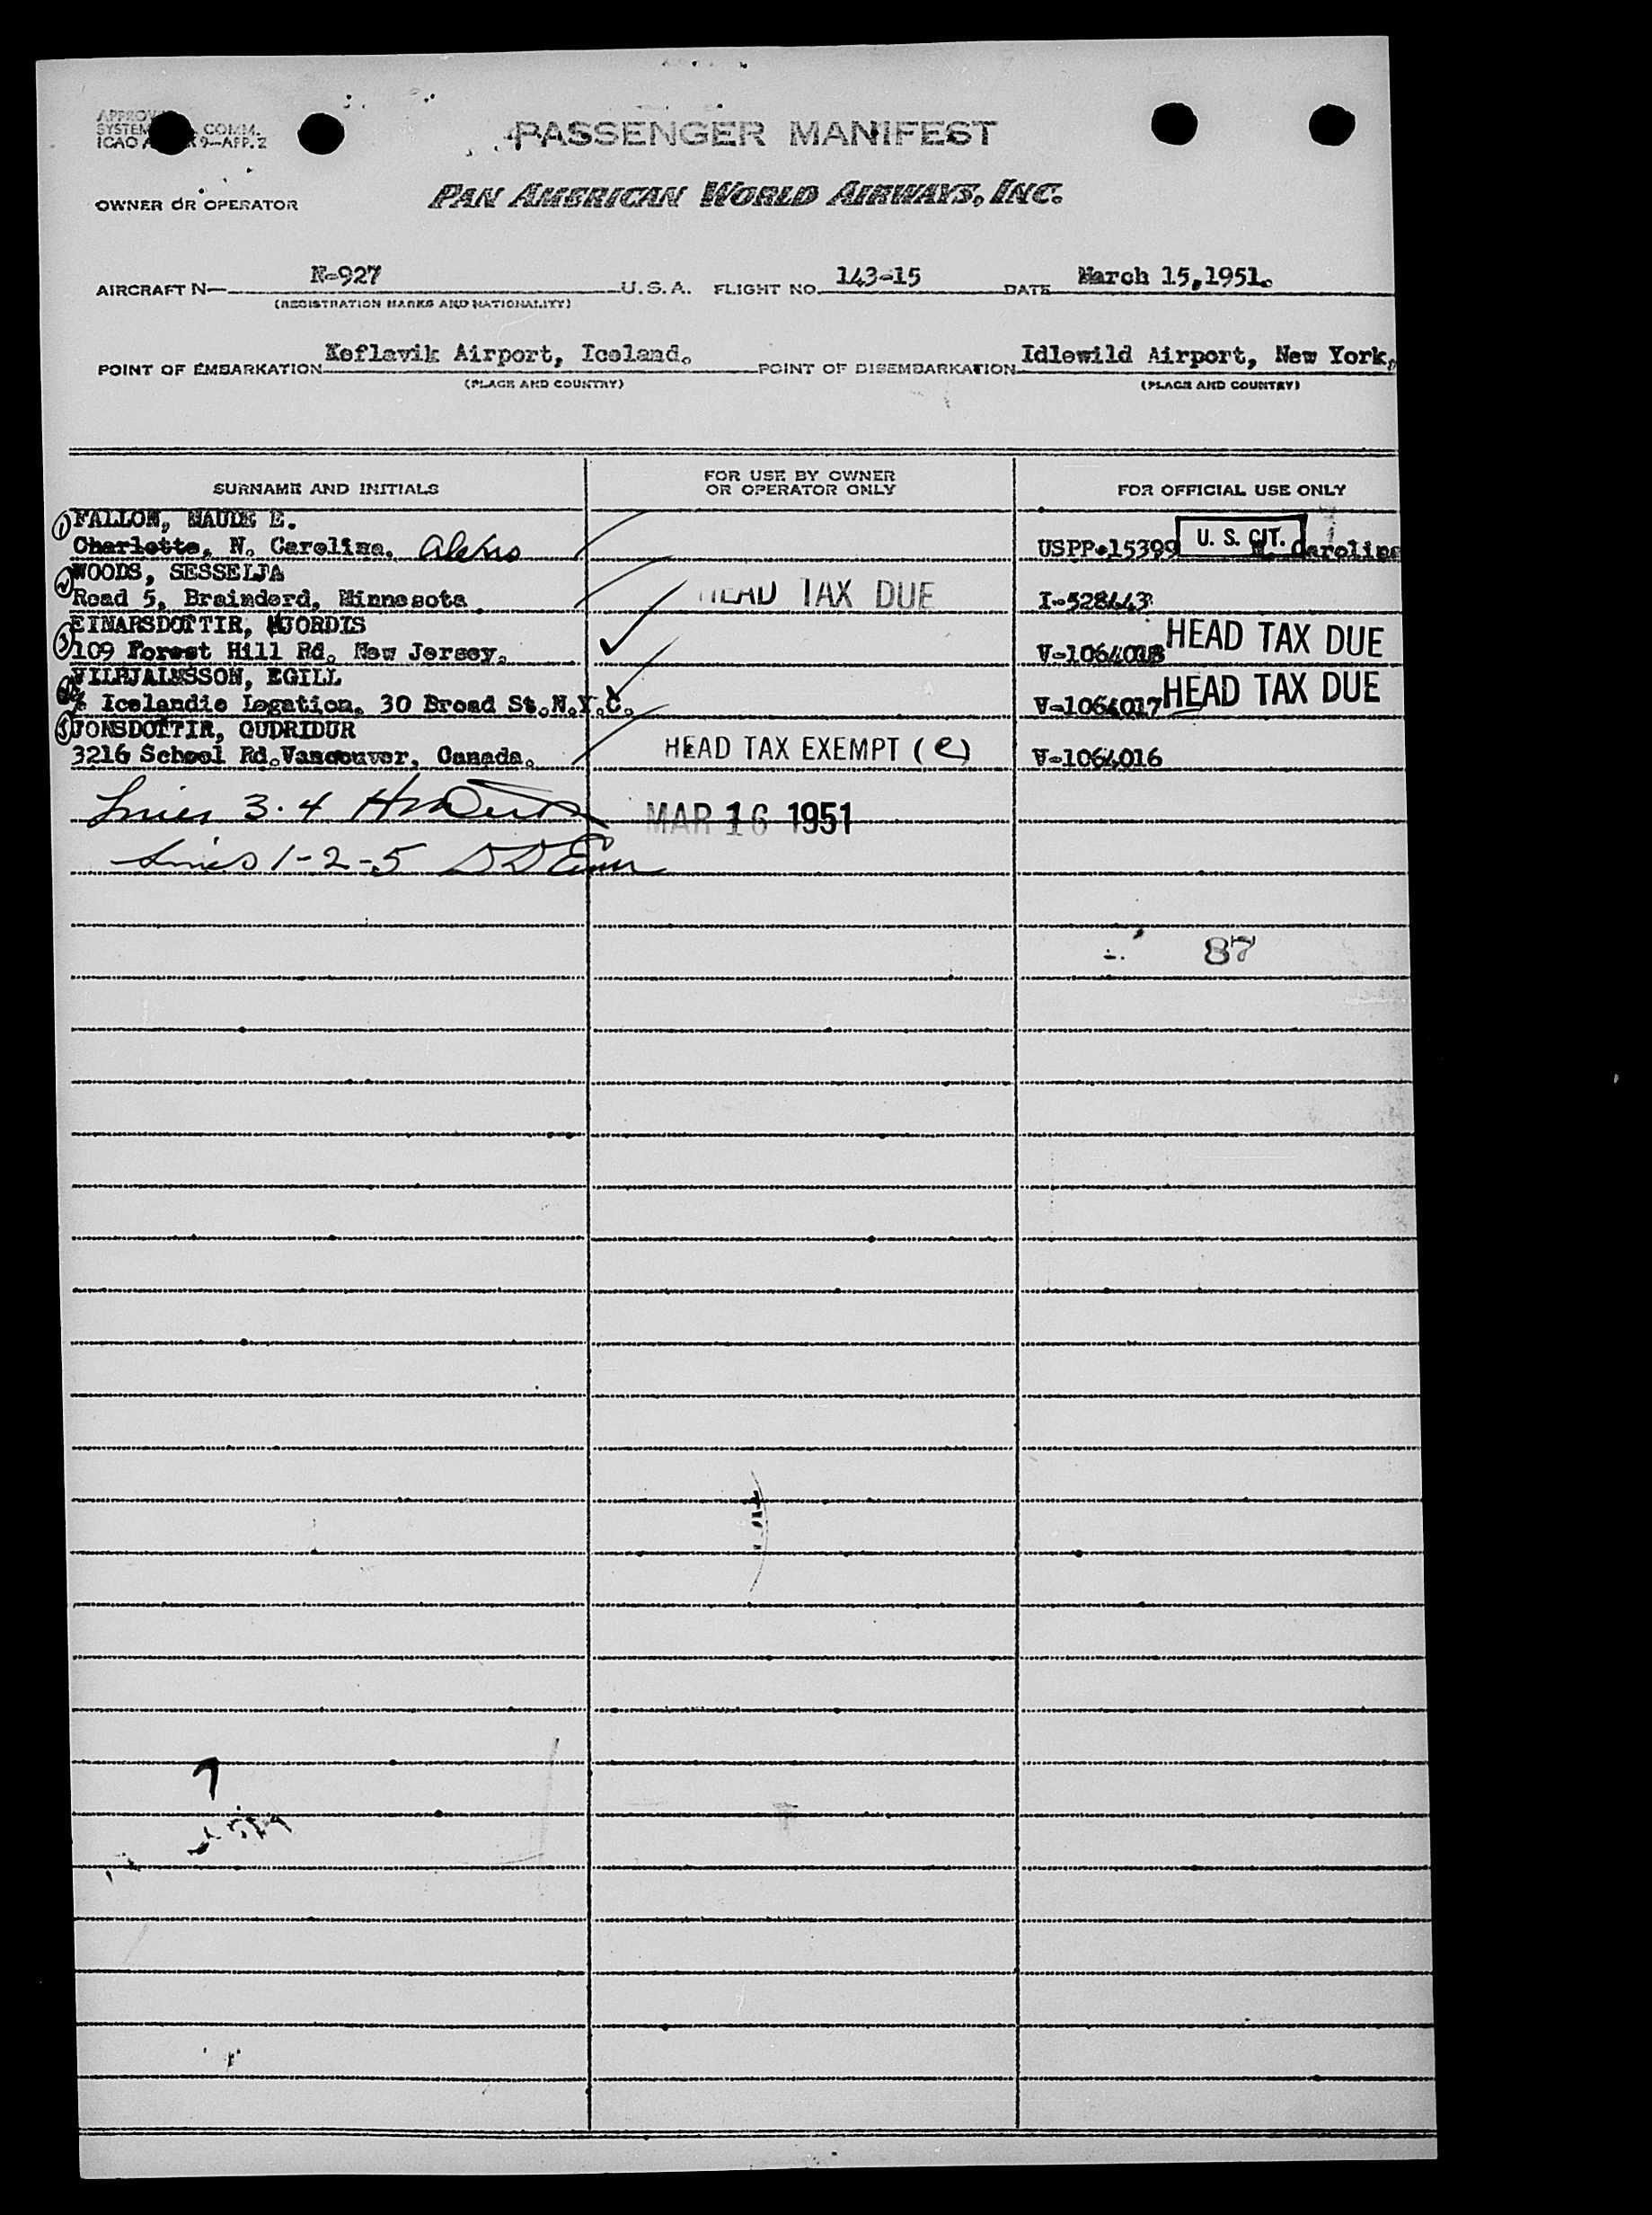 PASSENGER MANIFEST
COMM.
ICAO 9—APP. 2
OWNER OR OPERATOR PAN AMERICAN WORLD AIRWAYS, INC.
AIRCRAFT N— N-927 U.S.A. FLIGHT NO. 143-15 DATE March 15,1951.
(REGISTRATION MARKS AND NATIONALITY)
POINT OF EMBARKATION Keflavik Airport, Iceland. POINT OF DISEMBARKATION Idlewild Airport, New York,
(PLACE AND COUNTRY) (PLACE AND COUNTRY)
SURNAME AND INITIALS FOR USE BY OWNER OR OPERATOR ONLY FOR OFFICIAL USE ONLY
1 FALLON, MAUDE E.
Charlotte, N. Carolina. USPP.15399 U. S. CIT. N. Carolina
2 WOODS, SESSELJA
Road 5, Brainderd, Minnesota HEAD TAX DUE I-528443
3 EINARSDOTTIR, HJORDIS
109 Forest Hill Rd. New Jersey. V-1064018 HEAD TAX DUE
VILHJALMSSON, EGILL
% Icelandic Legation. 30 Broad St.N.Y.C. V-1064017 HEAD TAX DUE
5 JONSDOTTIR, GUDRIDUR
3216 School Rd.Vancouver, Canada. HEAD TAX EXEMPT (e) V-1064016
Lines 3.4 MAR 16 1951
Lines 1-2-5
87